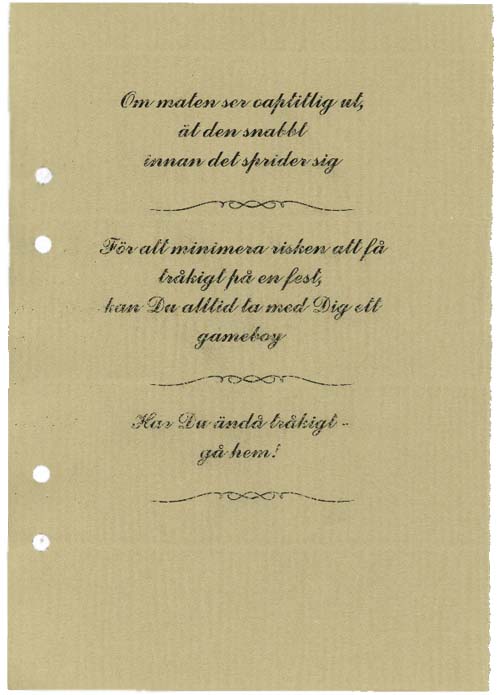 Om maten ser oaptitlig ut,
ät den snabbt
innan det sprider sig
För att minimera risken att få
tråkigt på en fest,
kan Du alltid ta med Dig ett
gameboy
Har Du ändå tråkigt -
gå hem!